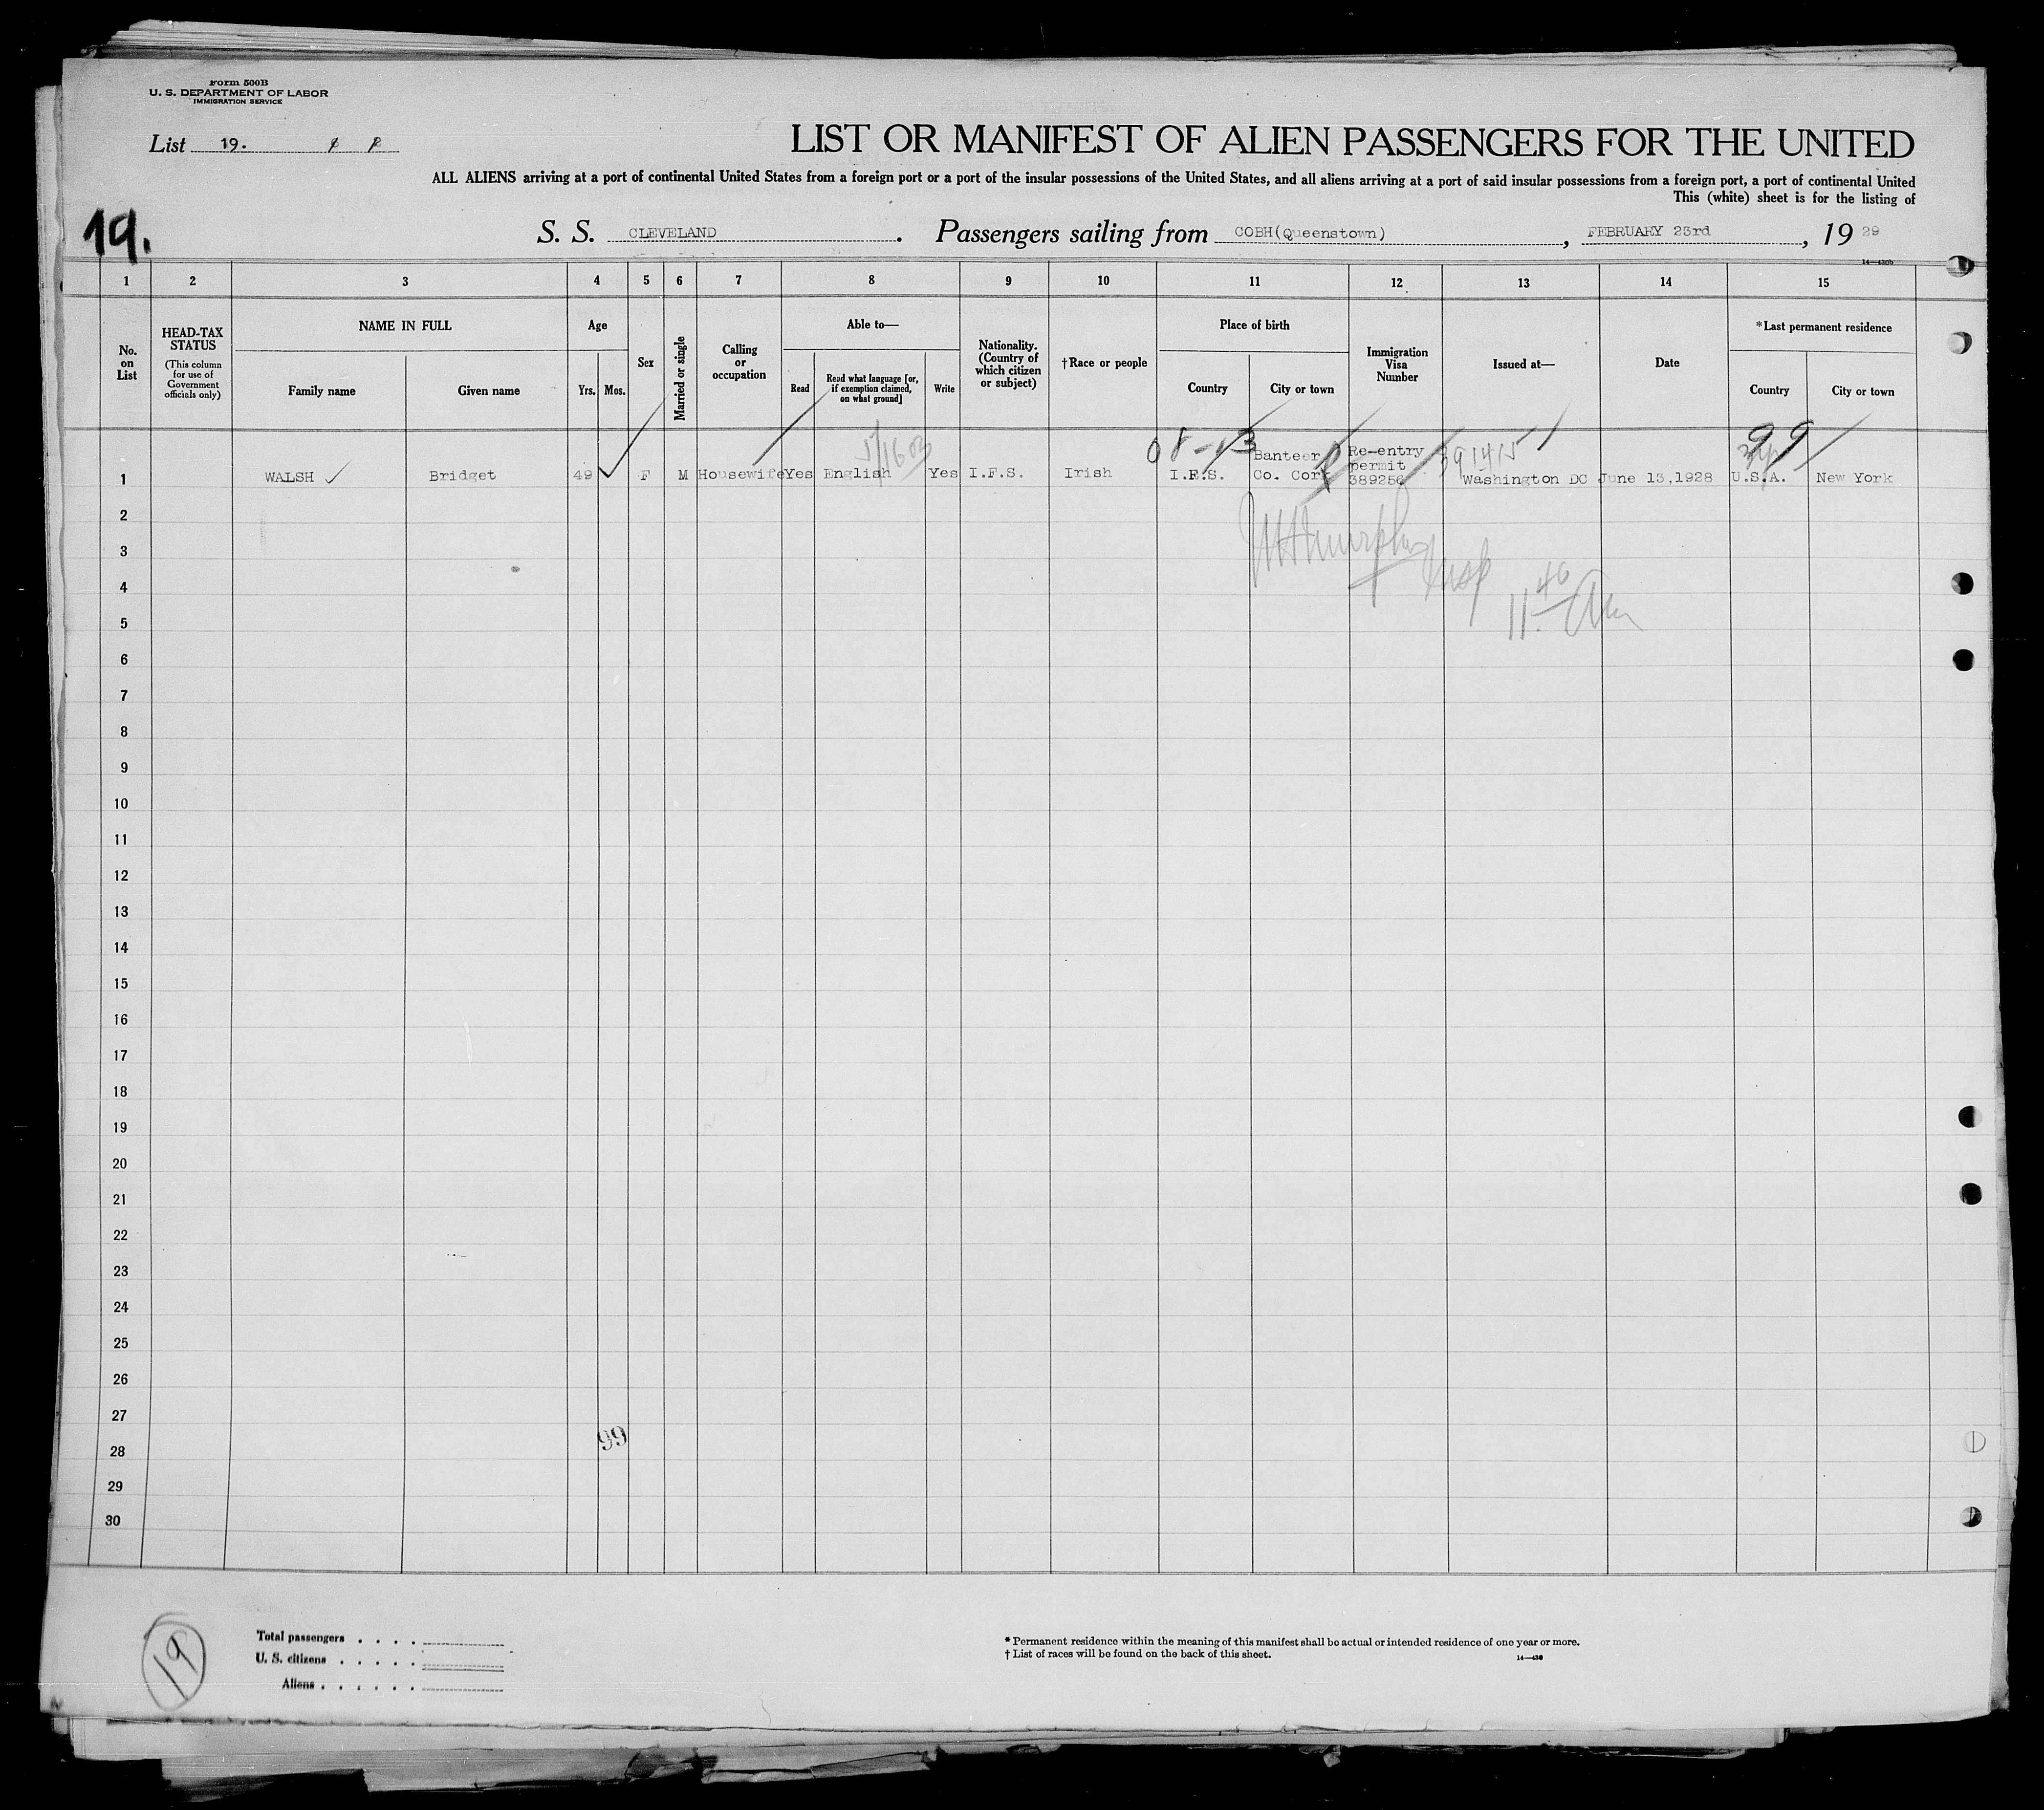 Form 500B
U. S. DEPARTMENT OF LABOR
IMMIGRATION SERVICE
List 19.
LIST OR MANIFEST OF ALIEN PASSENGERS FOR THE UNITED
ALL ALIENS arriving at a port of continental United States from a foreign port or a port of the insular possessions of the United States, and all aliens arriving at a port of said insular possessions from a foreign port, a port of continental United
This (white) sheet is for the listing of
19.
S. S. CLEVELAND. Passengers sailing from COBH(Queenstown), FEBRUARY 23rd, 19 29
1 2 3 4 5 6 7 8 9 10 11 12 13 14 15
No. on List
HEAD-TAX STATUS
(This column for use of Government officials only)
NAME IN FULL
Family name
Given name
Age
Yrs. Mos.
Sex
Married or single
Calling or occupation
Able to—
Read
Read what language [or, if exemption claimed, on what ground]
Write
Nationality. (Country of which citizen or subject)
†Race or people
Place of birth
Country
City or town
Immigration Visa Number
Issued at—
Date
*Last permanent residence
Country
City or town
08-13
99
1 WALSH Bridget 49 F M Housewife Yes English Yes I.F.S. Irish I.F.S. Banteer Co. Cork Re-entry permit 389256 Washington DC June 13,1928 U.S.A. New York
2
3
4
11.40 Am
5
6
7
8
9
10
11
12
13
14
15
16
17
18
19
20
21
22
23
24
25
26
27
99
28
29
30
19
Total passengers . . . .
U. S. citizens . . . . .
Aliens . . . . . .
* Permanent residence within the meaning of this manifest shall be actual or intended residence of one year or more.
† List of races will be found on the back of this sheet.